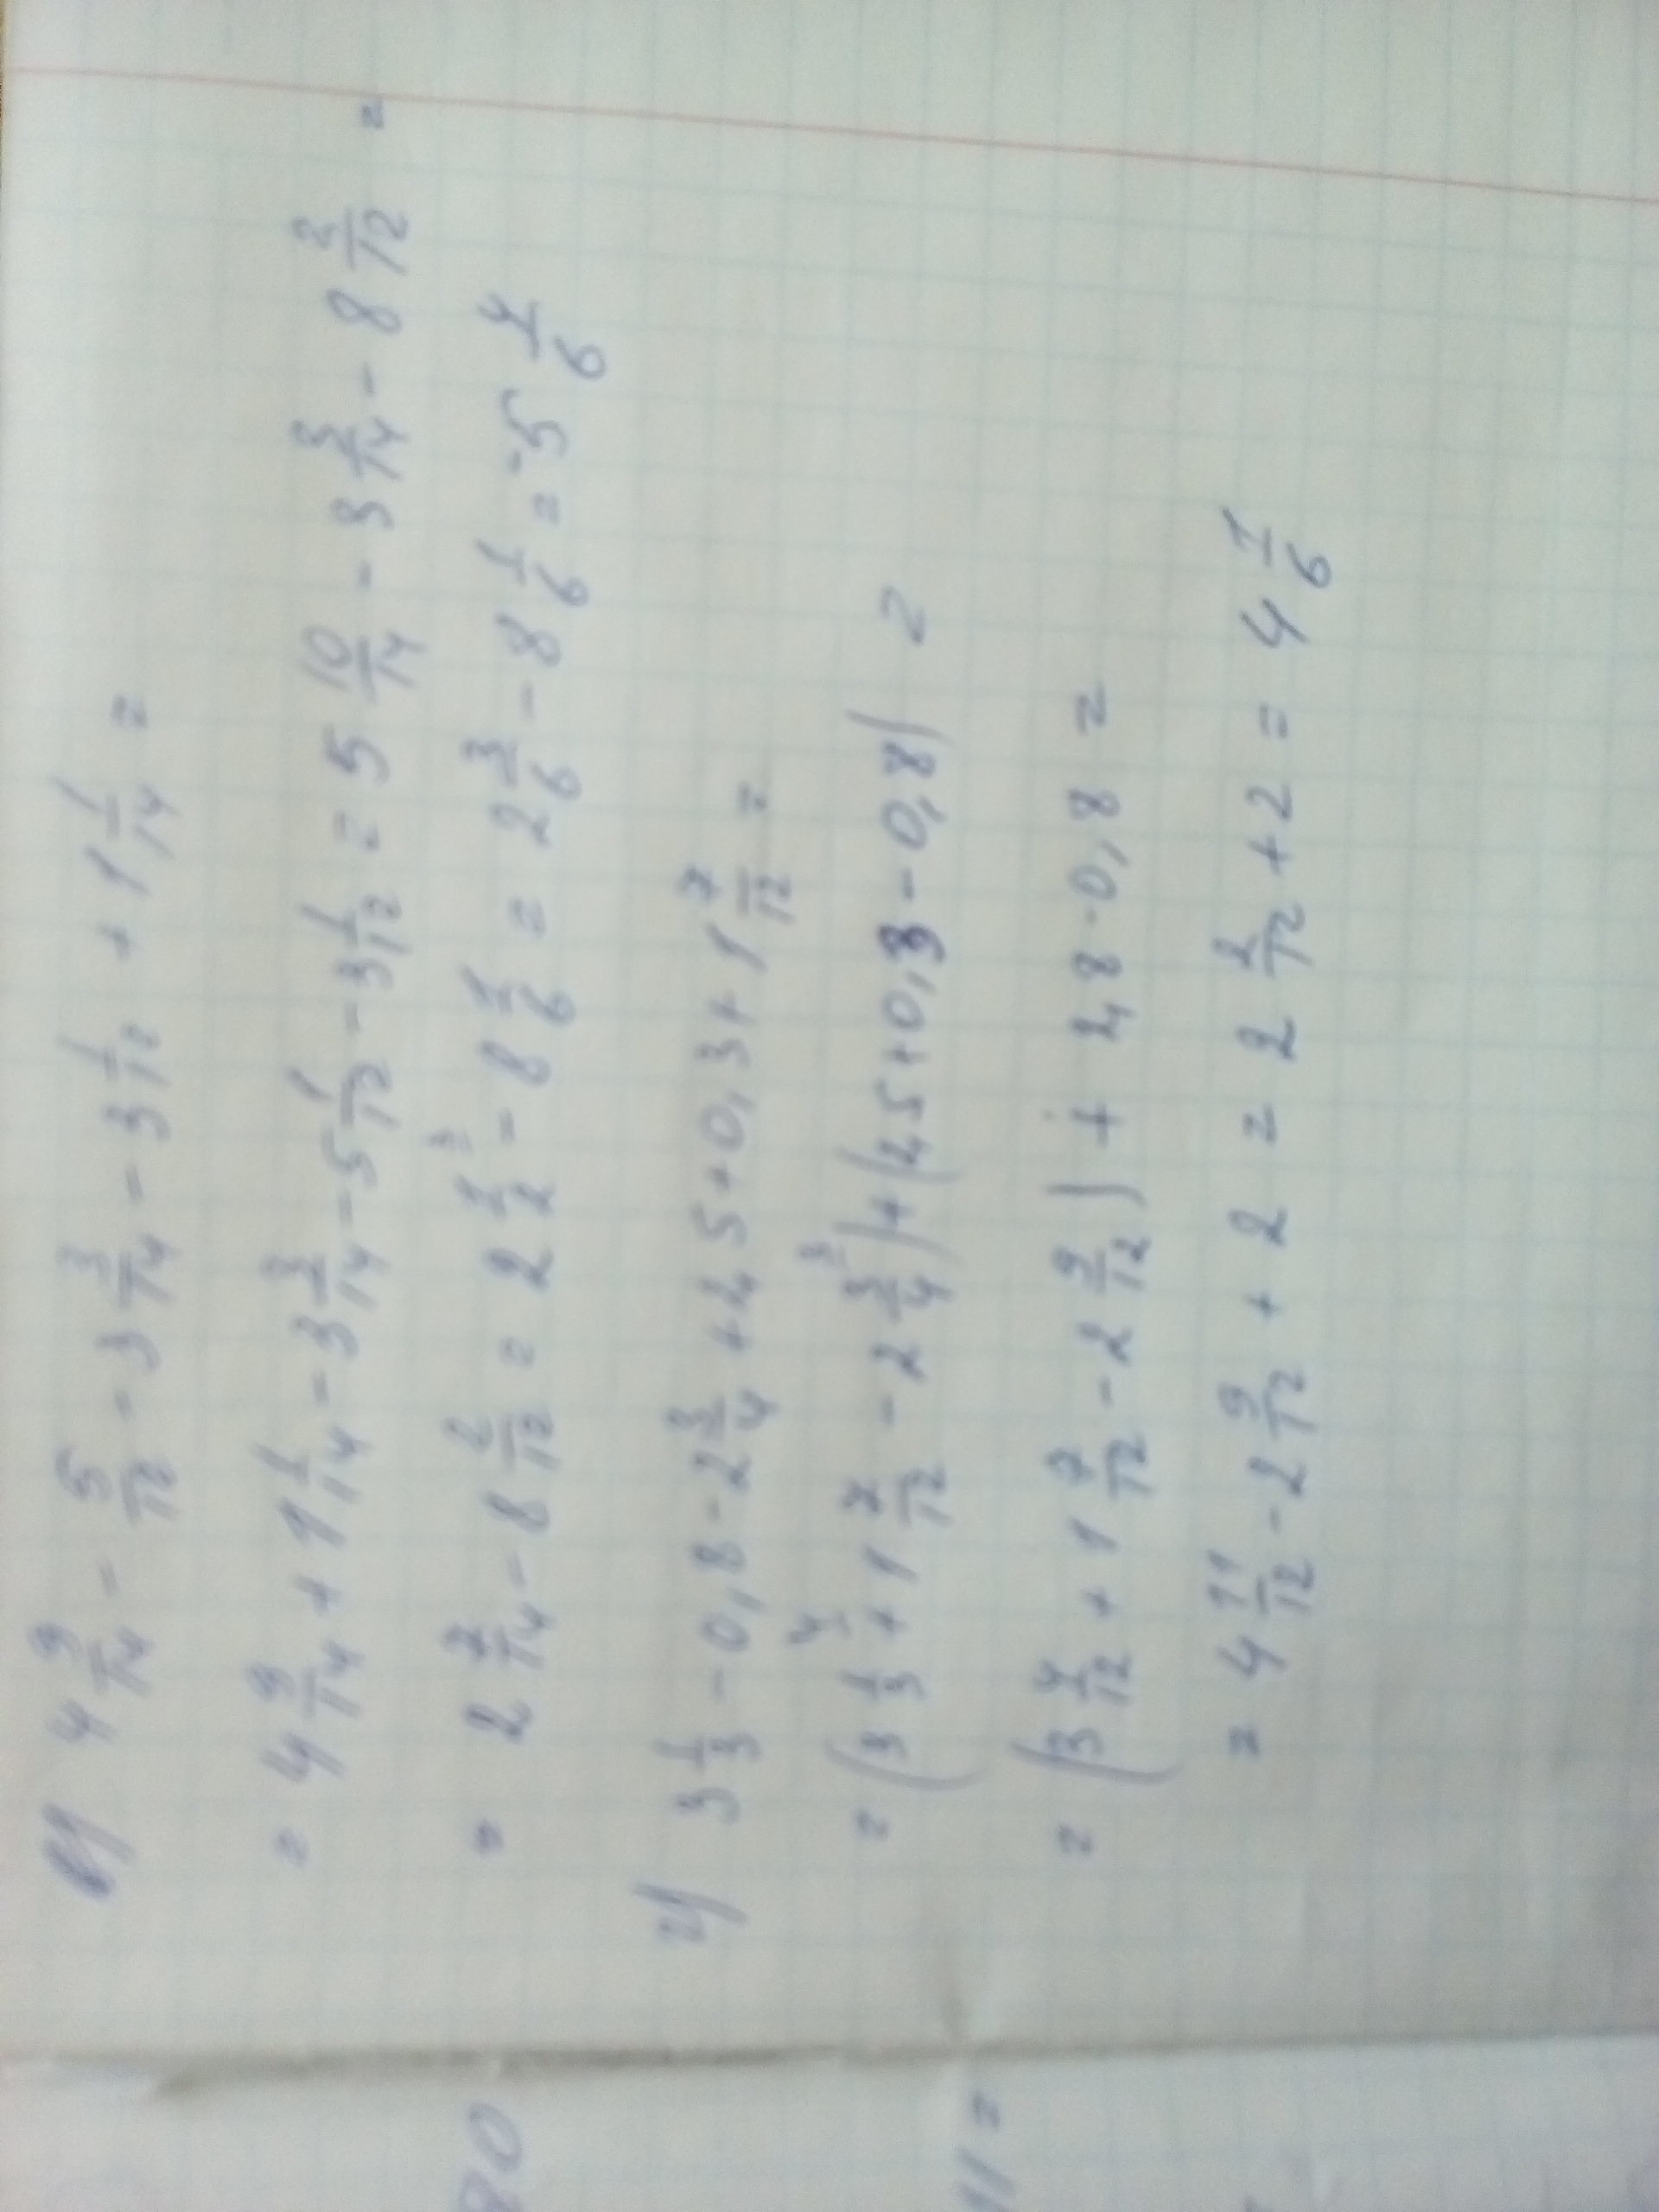 4 9/14 - 5/12 - 3 3/14 - 3 1/12 + 1 1/14 =
= 4 9/14 + 1 1/14 - 3 3/14 - 5 1/12 - 3 1/12 = 5 10/14 - 3 3/14 - 8 2/12 =
= 2 7/14 - 8 2/12 = 2 1/2 - 8 1/6 = 2 3/6 - 8 1/6 = -5 4/6
и) 3 1/3 - 0,8 - 2 3/4 + 2,5 + 0,3 + 1 7/12 =
= (3 1/3 + 1 7/12 - 2 3/4) + (2,5 + 0,3 - 0,8) =
= (3 4/12 + 1 7/12 - 2 9/12) + 2,8 - 0,8 =
= 4 11/12 - 2 9/12 + 2 = 2 2/12 + 2 = 4 1/6
80
11 =